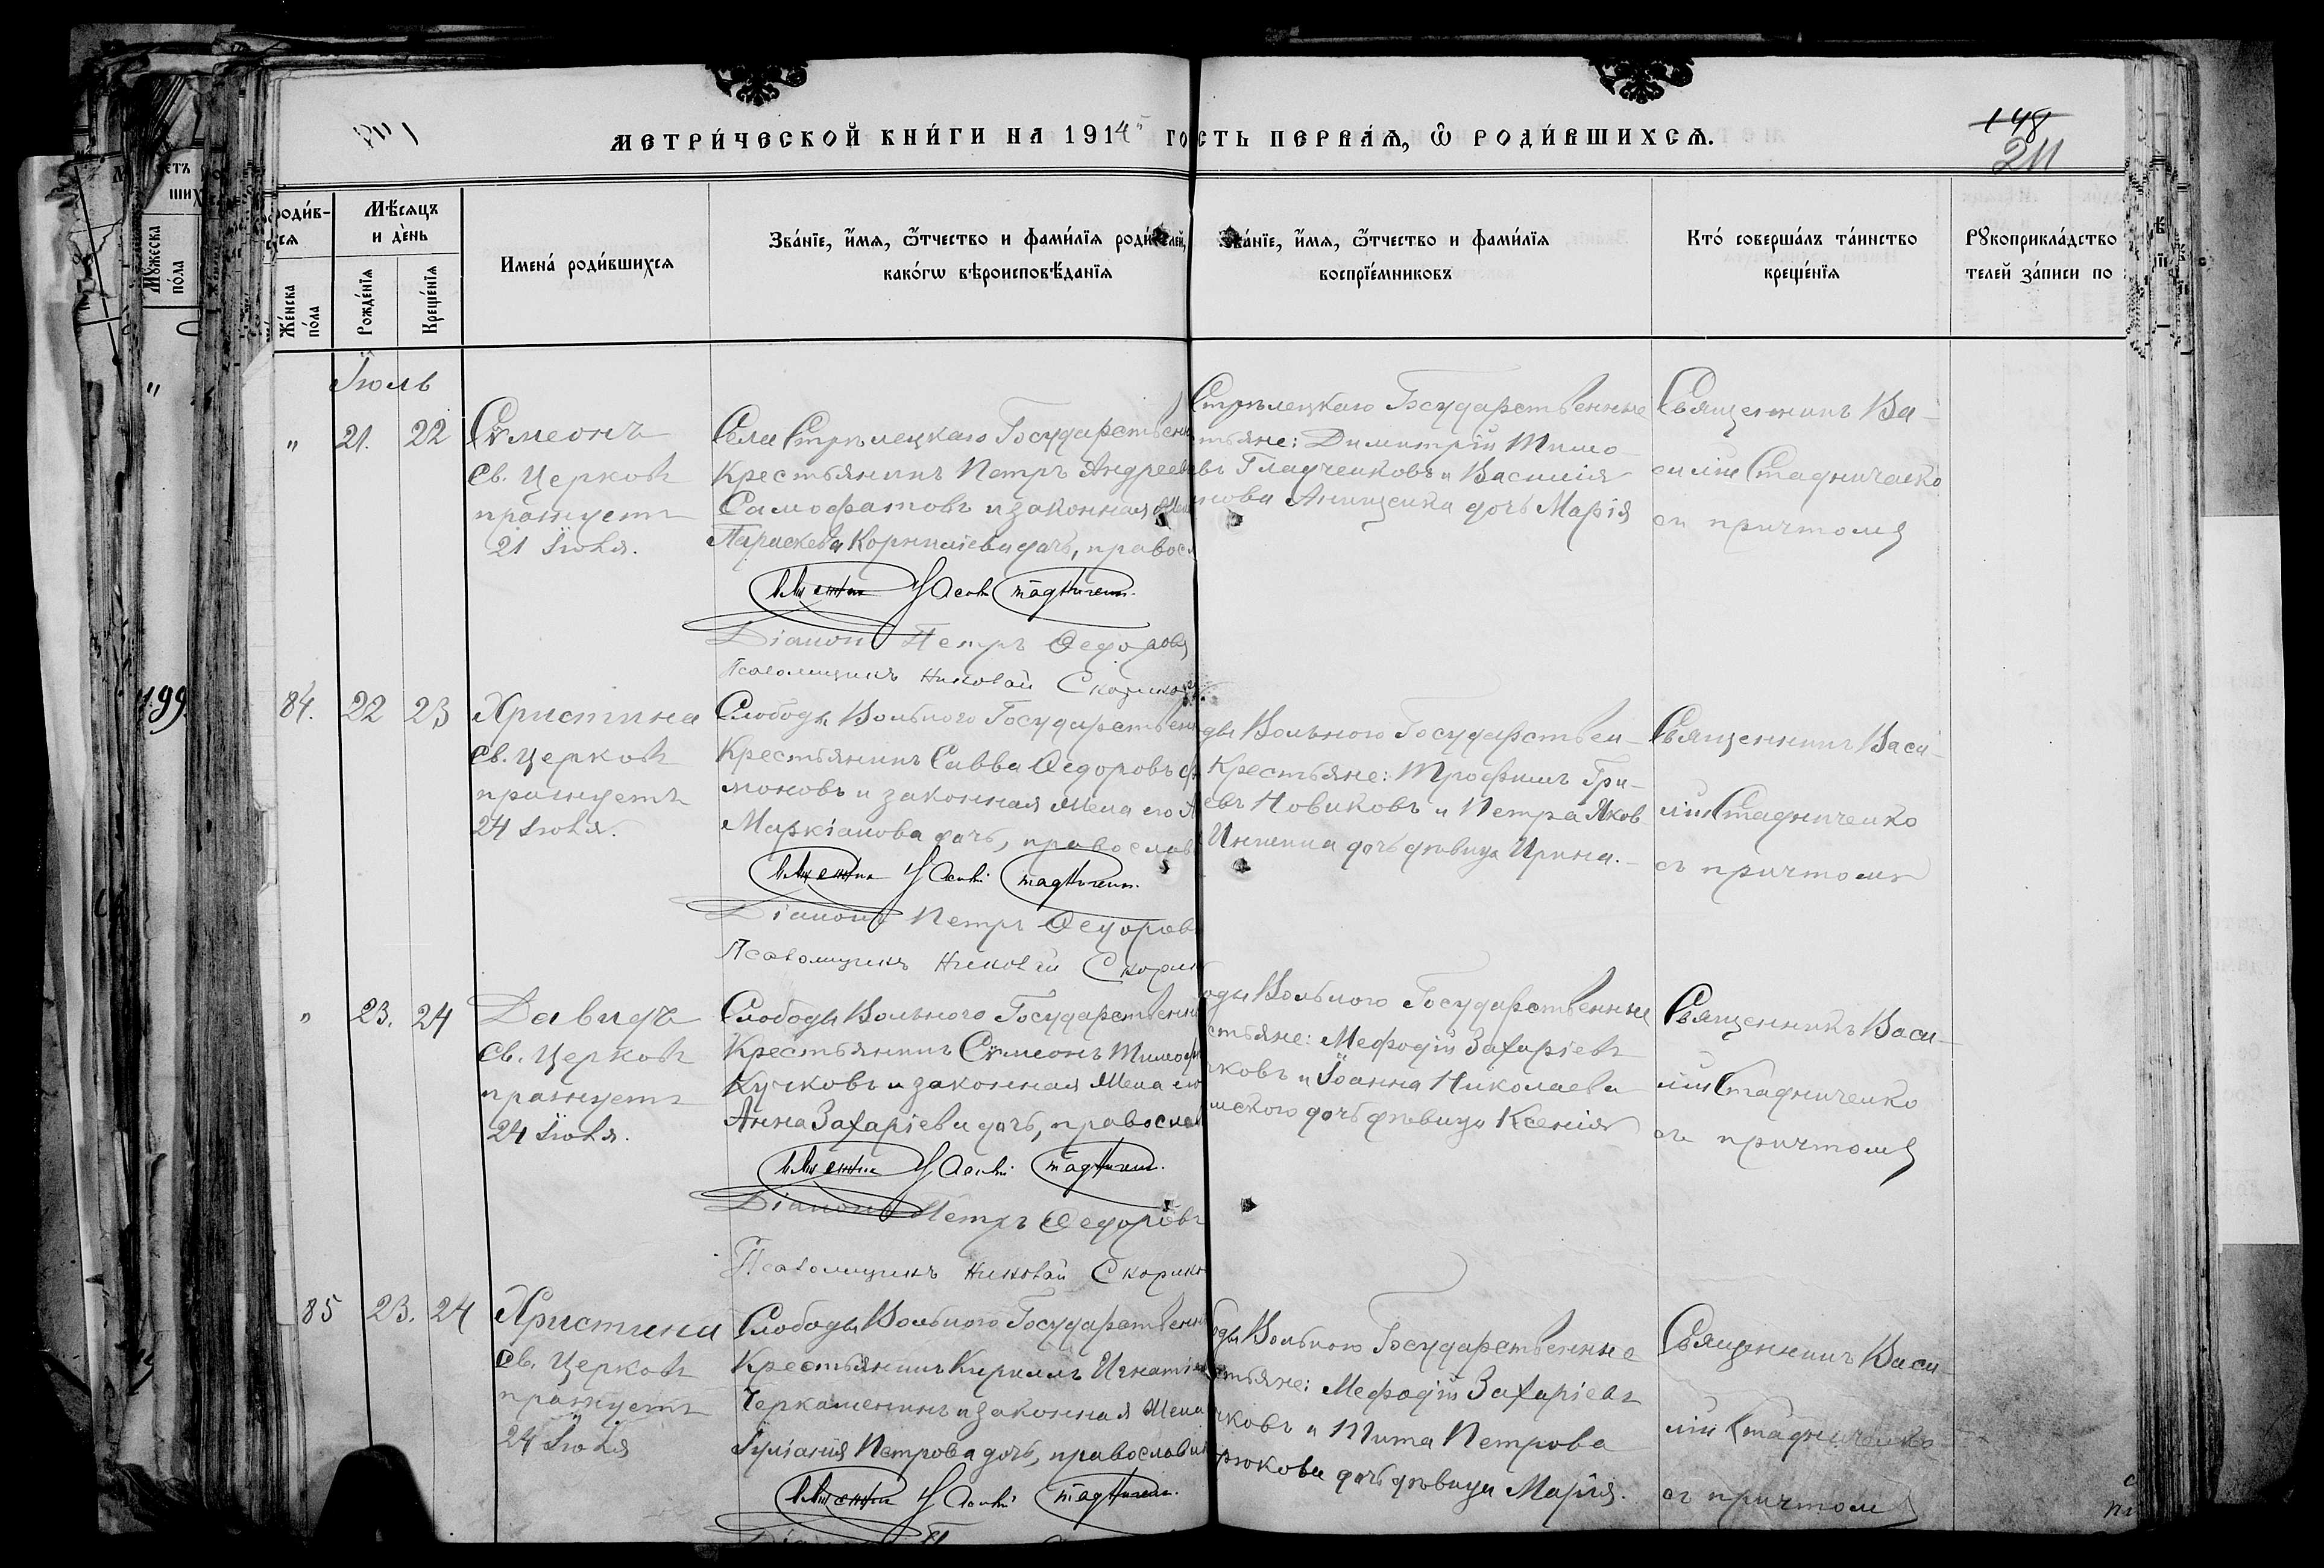 МЕТРИ́ЧЕСКОЙ КНИ́ГИ НА 1914 ГО
СТЬ ПЕРВАЯ, Ѿ РОДИ́ВШИХСѦ.
148
211
РОДИ́В-
СЯ
Мѣ́сѧцъ
и де́нь
Же́нска
по́ла
Рожде́нїѧ
Креще́нїѧ
Имена́ роди́вшихсѧ
Зва́нїе, и́мѧ, ѻ́тчество и фами́лїѧ роди́телей,
како́гѡ вѣроисповѣ́данїѧ
Зва́нїе, и́мѧ, ѻ́тчество и фами́лїѧ
воспрїе́мниковъ
Кто́ соверша́лъ та́инство
креще́нїѧ
Рꙋкоприкла́дство
телей за́писи по
Мꙋ́жеска
по́ла
Іюль
" 21. 22
Сѵмеонъ
Св. Церковь
празнуетъ
21 Іюля.
Села Стрѣлецкаго Государствен
Крестьянинъ Петръ Андреев
Самофатовъ и законная жен
Параскева Корниліева дочь, правосл
Діаконъ Петръ Ѳедоровъ
Псаломщикъ Николай Скорико
Стрѣлецкаго Государственные
тьяне: Димитрій Тимо-
въ Гладченковъ и Василія
дочь Марія
Священникъ Ва-
силій Стадниченко
съ причтомъ
199.
84. 22 23
Христина
Св. Церковь
празнуетъ
24 Іюля.
Слободы Вольного Государствен
Крестьянинъ Савва Ѳедоровъ
моновъ и законная жена его
Маркіанова дочь, православ
Діаконъ Петръ Ѳедоровъ
Псаломщикъ Николай Скорик
ды Вольного Государствен-
Крестьяне: Трофимъ Гри-
евъ Новиковъ и Петра Яков
дочь дѣвица Ирина.
Священникъ Васи-
лій Стадниченко
съ причтомъ
" 23. 24
Давидъ
Св. Церковь
празнуетъ
24 Іюля.
Слободы Вольного Государственн
Крестьянинъ Сѵмеонъ Тимоф
Кучковъ и законная жена его
Анна Захаріева дочь, правосла
Діаконъ Петръ Ѳедоровъ
Псаломщикъ Николай Скорико
оды Вольного Государственные
стьяне: Мефодій Захаріевъ
чковъ и Іоанна Николаева
мского дочь дѣвица Ксенія
Священникъ Васи-
лій Стадниченко
съ причтомъ
85 23. 24
Христина
Св. Церковь
празнуетъ
24 Іюля
Слободы Вольного Государственн
Крестьянинъ Кириллъ Игнатіе
Черкашенинъ и законная жена
Іуліанія Петрова дочь, православн
оды Вольного Государственные
стьяне: Мефодій Захаріевъ
чковъ и Тита Петрова
рюкова дочь дѣвица Марія.
Священникъ Васи-
лій Стадниченко
съ причтомъ